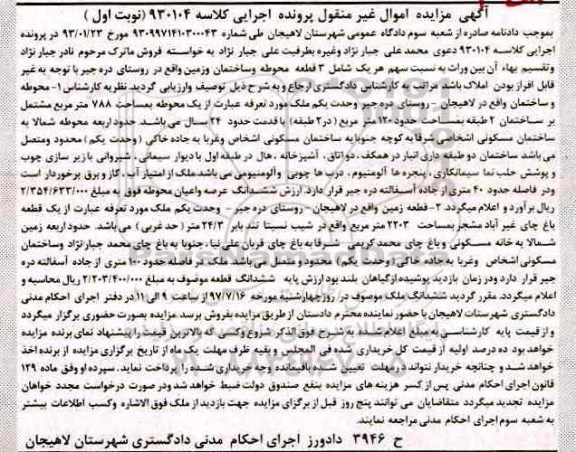 آگهی مزایده اموال غیر منقول پرونده اجرایی کلاسه ۹۳۰۱۰۴ (نوبت اول)
بموجب دادنامه صادره از شعبه سوم دادگاه عمومی شهرستان لاهیجان طی شماره ۹۳۰۹۹۷۱۴۱۰۳۰۰۰۴۳ مورخ ۹۳/۰۱/۲۳ در پرونده
اجرایی کلاسه ۹۳۰۱۰۴ دعوی محمد علی جبار نژاد وغیره بطرفیت علی جبار نژاد به خواسته فروش ماترک مرحوم نادر جبار نژاد
وتقسیم بهاء آن بین وراث به نسبت سهم هر یک شامل ۳ قطعه محوطه وساختمان وزمین واقع در روستای دره جیر با توجه به غیر
قابل افراز بودن املاک باشد مراتب به کارشناس دادگستری ارجاع و به شرح ذیل توصیف وارزیابی گردید. نظریه کارشناس ۱- محوطه
و ساختمان واقع در لاهیجان - روستای دره جیر وحدت یکم ملک مورد تعرفه عبارت از یک محوطه بمساحت ۷۸۸ متر مربع مشتمل
بر ساختمان ۲ طبقه بمساحت حدود ۱۲۰ متر مربع (در ۲ طبقه) با قدمت حدود ۲۴ سال می باشد. حدود اربعه محوطه شمالا به
ساختمان مسکونی اشخاصی شرقا به کوچه جنوبا به ساختمان مسکونی اشخاص وغربا به جاده خاکی (وحدت یکم) محدود ومتصل
می باشد ساختمان دو طبقه داری انبار در همکف، دو اتاق، آشپزخانه، هال در طبقه اول با دیوار سیمانی، شیروانی با زیر سازی چوب
و پوشش حلب نما سیمانکاری، پنجره ها آلومنیوم، درب ها چوبی وآلومنیومی می باشد ملک از امتیاز آب، گاز و برق برخوردار است
ودر فاصله حدود ۴۰ متری از جاده آسفالته دره جیر قرار دارد. ارزش ششدانگ عرصه واعیان محوطه فوق به مبلغ ۲/۳۵۴/۶۳۳/۰۰۰
ریال برآورد و اعلام میگردد. ۲- قطعه زمین واقع در لاهیجان - روستای دره جیر - وحدت یکم ملک مورد تعرفه عبارت از یک قطعه
باغ چای غیر آباد مشجر بمساحت ۲۲۰۳ متر مربع واقع در شیب نسبتا تند بابر ۲۴/۳ متر (حد غربی) می باشد. حدود اربعه زمین
شمالا به خانه مسکونی و باغ چای محمد کریمی شرقا به باغ چای قربان علی نیا، جنوبا به باغ چای محمد جبار نژاد وساختمان
مسکونی اشخاص وغربا به جاده خاکی (وحدت یکم) محدود و متصل می باشد. ملک در فاصله حدود ۱۰۰ متری از جاده آسفالته دره
جیر قرار دارد ودر زمان بازدید پوشیده از گیاهان بلند بود ارزش پایه ششدانگ قطعه موضوف به مبلغ ۲/۲۰۳/۴۰۰/۰۰۰ ریال محاسبه و
اعلام میگردد. مقرر گردید ششدانگ ملک موصوف در روز چهارشنبه مورخه ۹۷/۷/۱۶ از ساعت ۹ الی ۱۱ در دفتر اجرای احکام مدنی
دادگستری شهرستان لاهیجان با حضور نماینده محترم دادستان از طریق مزایده بفروش برسد. مزایده بصورت حضوری برگزار میگردد
و از قیمت پایه کارشناسی به مبلغ اعلام شده به شرح فوق الذکر شروع و کسی که بالاترین قیمت را پیشنهاد نماید برنده مزایده
خواهد بود ده درصد اولیه از قیمت کل خریداری شده فی المجلس و بقیه ظرف مهلت یک ماه از تاریخ برگزاری مزایده از برنده اخذ
خواهد شد و چنانچه خریدار نتواند در مهلت تعیین شده باقیمانده وجه خریداری شده را پرداخت نماید. سپرده او وفق ماده ۱۲۹
قانون اجرای احکام مدنی پس از کسر هزینه های مزایده بنفع صندوق دولت ضبط خواهد شد ودر صورت درخواست مجدد خواهان
مزایده تجدید میگردد متقاضیان می توانند پنج روز قبل از برگزای مزایده جهت بازدید از ملک فوق الاشاره وکسب اطلاعات بیشتر
به شعبه سوم اجرای احکام مدنی مراجعه نمایند.
ح ۳۹۴۶ دادورز اجرای احکام مدنی دادگستری شهرستان لاهیجان